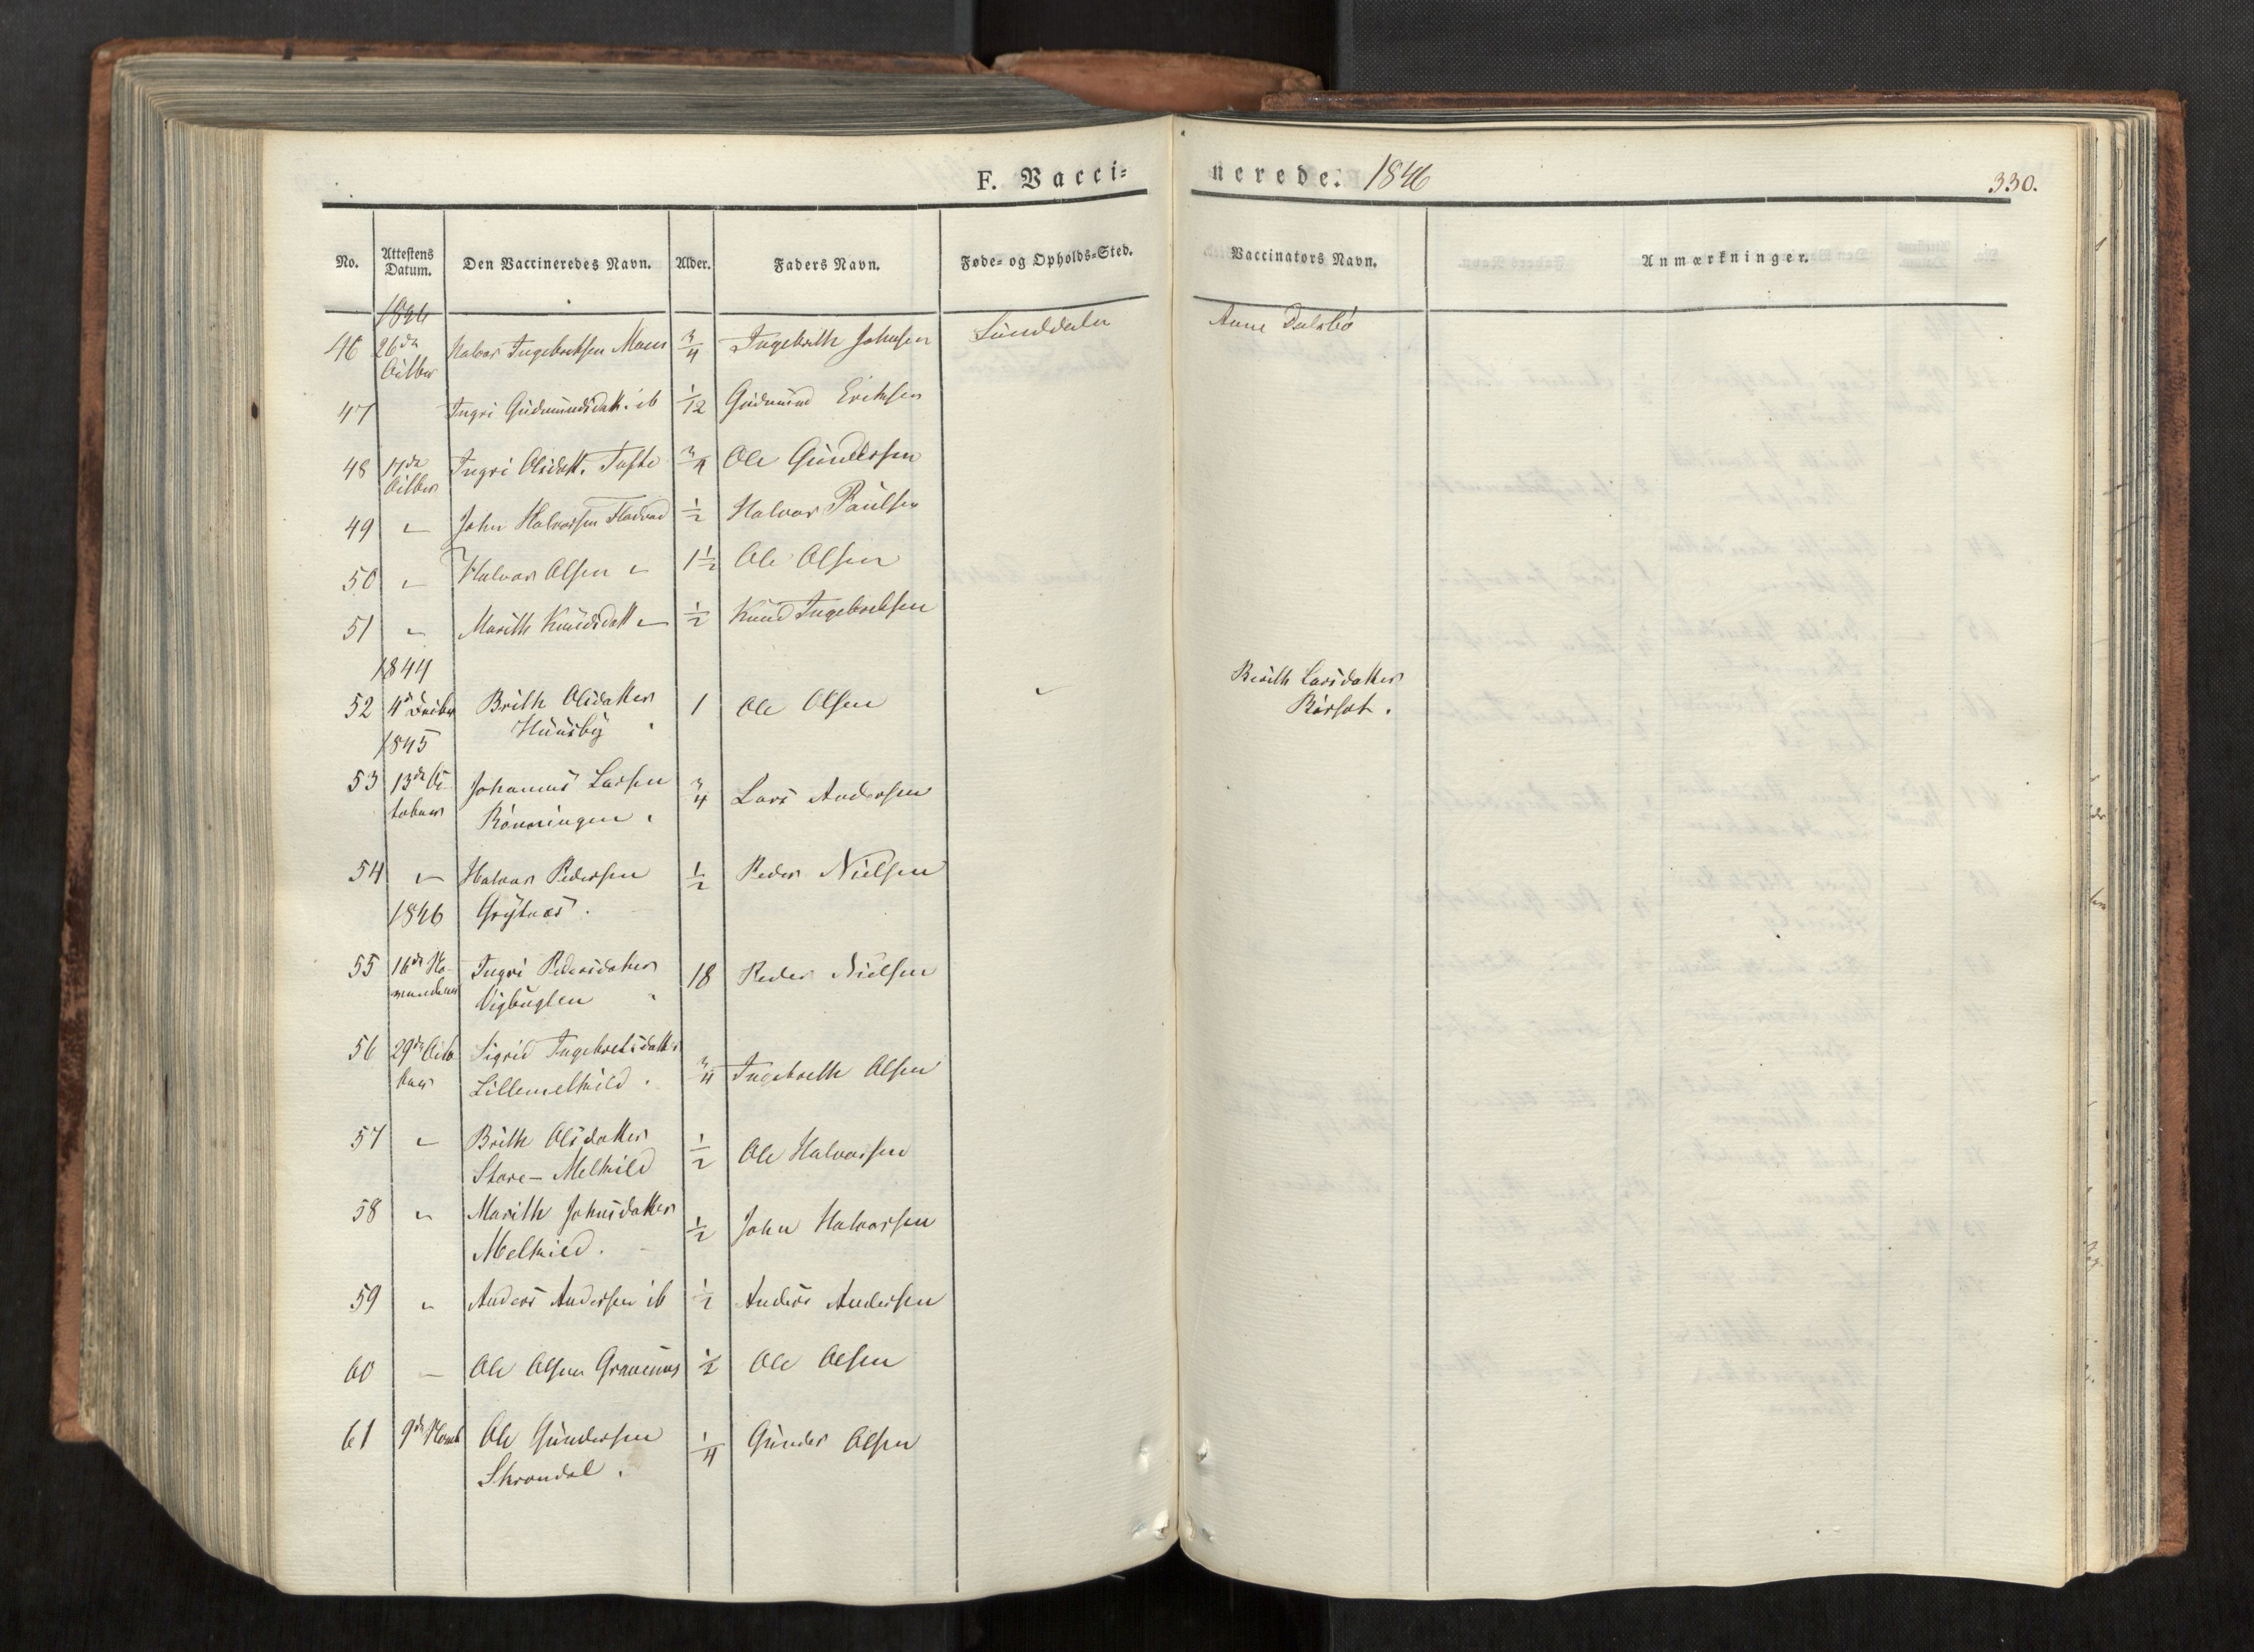 F. Vacci=
nerede. 1846
330.
No. Attestens Datum. Den Vaccineredes Navn. Alder. Faders Navn. Føde- og Opholds-Sted. Vaccinators Navn. Anmærkninger.
1846
46 26de Halvor Ingebrethsen Moen 3/4 Ingebreth Johnsen Sunddalen Anne Dalsbö
Octbr
47 Ingri Gudmundsdatt. ib 1/12 Gudmund Erichsen
48 17de Ingri Olsdatt. Tofte 3/4 Ole Gundersen
Octbr
49 " John Halvorsen Fladvad 1/2 Halvor Paulsen
50 " Halvor Olsen " 1 1/2 Ole Olsen
51 " Marith Knudsdatt " 1/2 Knud Ingebrethsen
1844
52 4de Decbr Brith Olsdatter 1 Ole Olsen " Berith Larsdatter
Huusby Börset.
1845
53 13de Oc- Johannes Larsen 3/4 Lars Andersen
tober Rönningen.
54 " Halvor Pedersen 1/2 Peder Nielsen
1846 Grytnes.
55 16de No- Ingri Pedersdatter 18 Peder Nielsen
vember
56 29de Octo- Sigrid Ingebretsdatter 3/4 Ingebreth Olsen
ber Lillemelkild.
57 " Brith Olsdatter 1/2 Ole Halvorsen
Store-Melkild
58 " Marith Johnsdatter 1/2 John Halvorsen
Melkild.
59 " Anders Andersen ib 1/2 Anders Andersen
60 — Ole Olsen 1/2 Ole Olsen
61 9de Novb Ole Gundersen 1/4 Gunder Olsen
Skrondal.